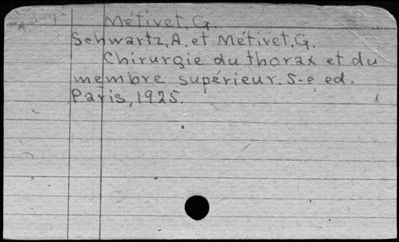 Métivet, G.
Schwartz, A. et Métivet, G.
Chirurgie du thorax et du
membre supérieur. 5-e ed.
Paris, 1925.